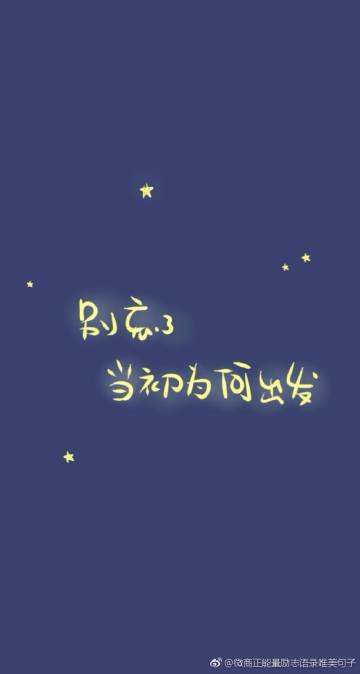 别忘了
当初为何出发
@微商正能量励志语录唯美句子